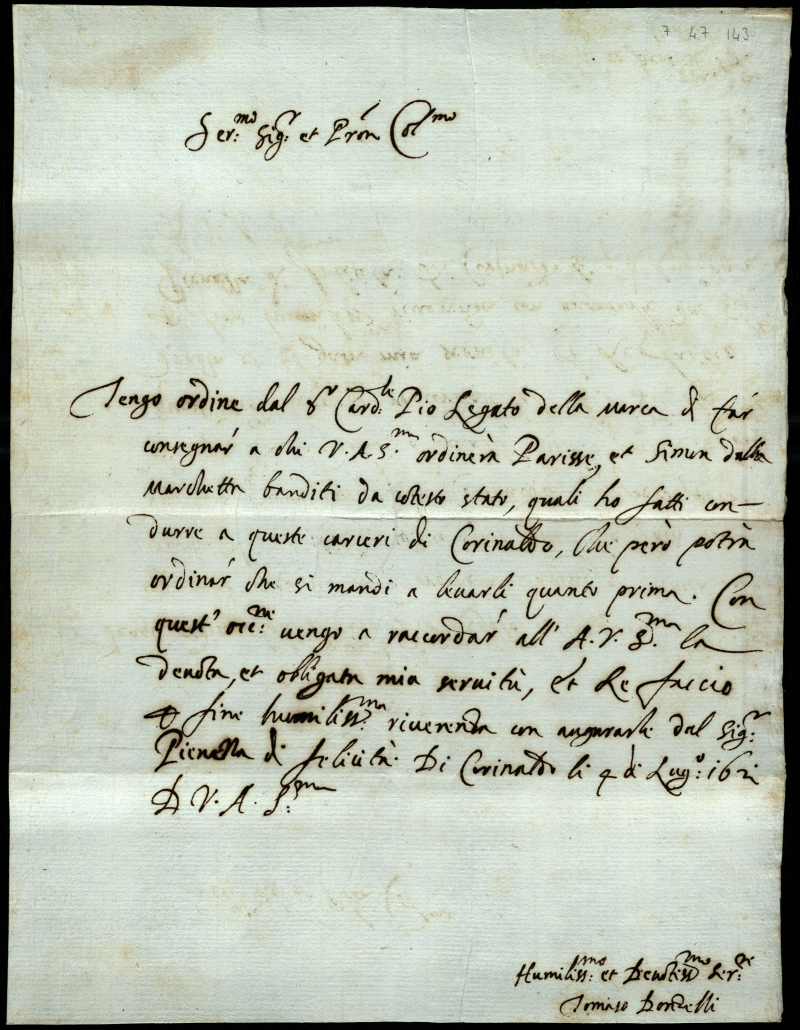 7 47 143
Ser.mo Sig.r et Pròn Col.mo
Tengo ordine dal S.r Card.le Pio Legato della Marca di far
consegnar a chi V. A. S.ma ordinerà Parisse, et Simon dalla
Marchetta banditi da cotesto stato, quali ho fatti con-
durre a queste carceri di Corinaldo, Che però potrà
ordinar che si mandi a levarli quanto prima. Con
quest' occ.ne vengo a raccordar all' A. V. S.ma la
devota, et obligata mia servitù, et Le faccio
fine humiliss.ma riverenda con augurarle dal Sig.r
Pienezza di felicità. Di Corinaldo li 4 di Lug.o 1621
D V. A. S.ma
Humiliss.mo et Devotiss.mo Ser.re
Tomaso Bonzelli